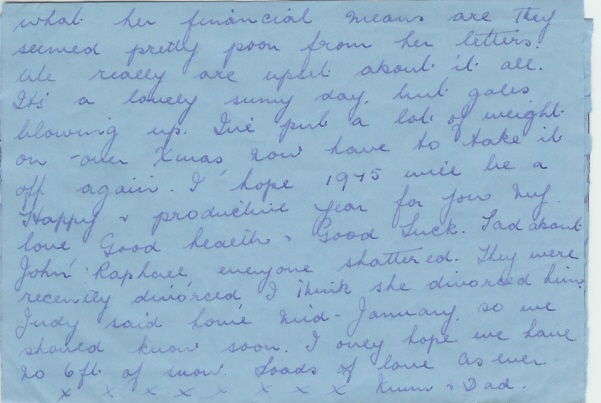 what her financial means are they
seemed pretty poor from her letters.
We really are upset about it all.
It's a lovely sunny day, but gales
blowing up. I've put a lot of weight
on - over Xmas now have to take it
off again. I hope 1975 will be a
Happy & productive year for you my
love Good health & Good Luck. Sad about
John Raphael everyone shattered. They were
recently divorced I think she divorced him.
Judy said home mid-January, so we
should know soon. I only hope we have
no 6ft of snow. Loads of love as ever
x x x x x x x x Mum & Dad.